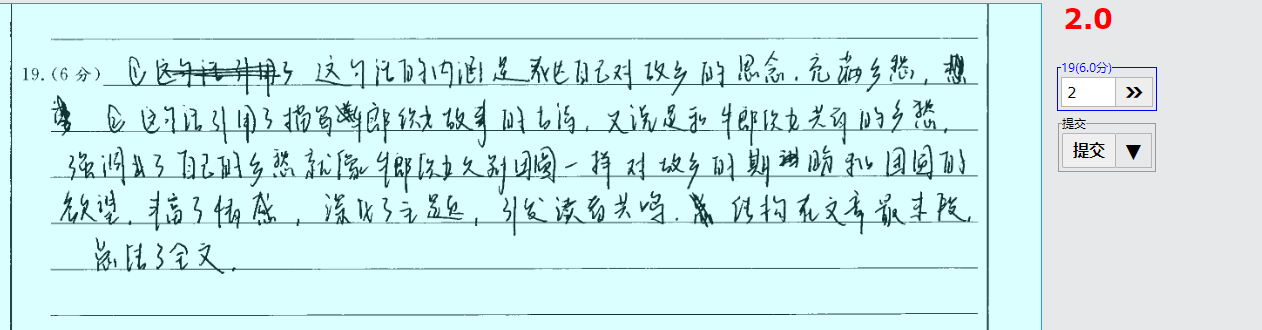 2.0
19.(6分) ①这句话的内涵是表达自己对故乡的思念,充满乡愁,
②这句话引用了描写牛郎织女故事的古诗,又说是和牛郎织女共有的乡愁,
强调出了自己的乡愁就像牛郎织女久别团圆一样对故乡的期盼和团圆的
欲望,丰富了情感,深化了主题,引发读者共鸣.结构在文章最末段,
总结了全文.
19(6.0分)
2 »
提交
提交 ▼